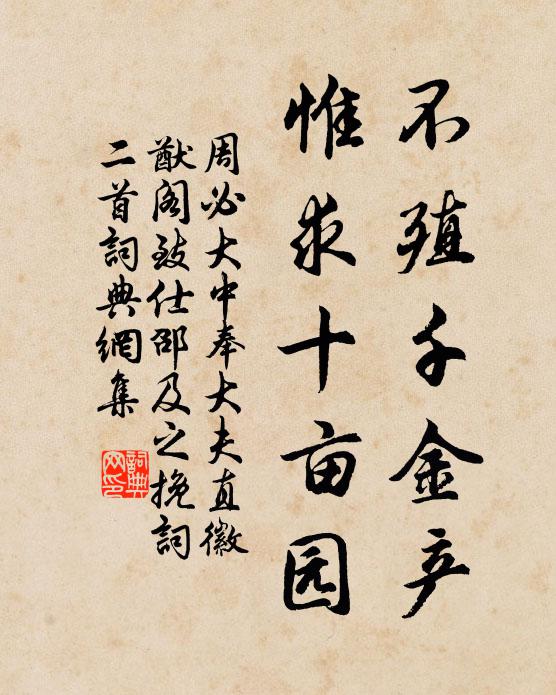 不殖千金产
惟求十亩园
周必大中奉大夫直徽
猷阁致仕邵及之挽詞
二首詞典網集
詞典网印